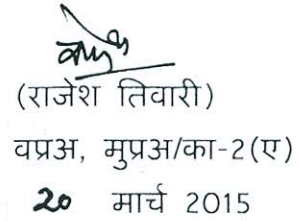 (राजेश तिवारी)
वप्रअ, मुप्रअ/का-2(ए)
20 मार्च 2015